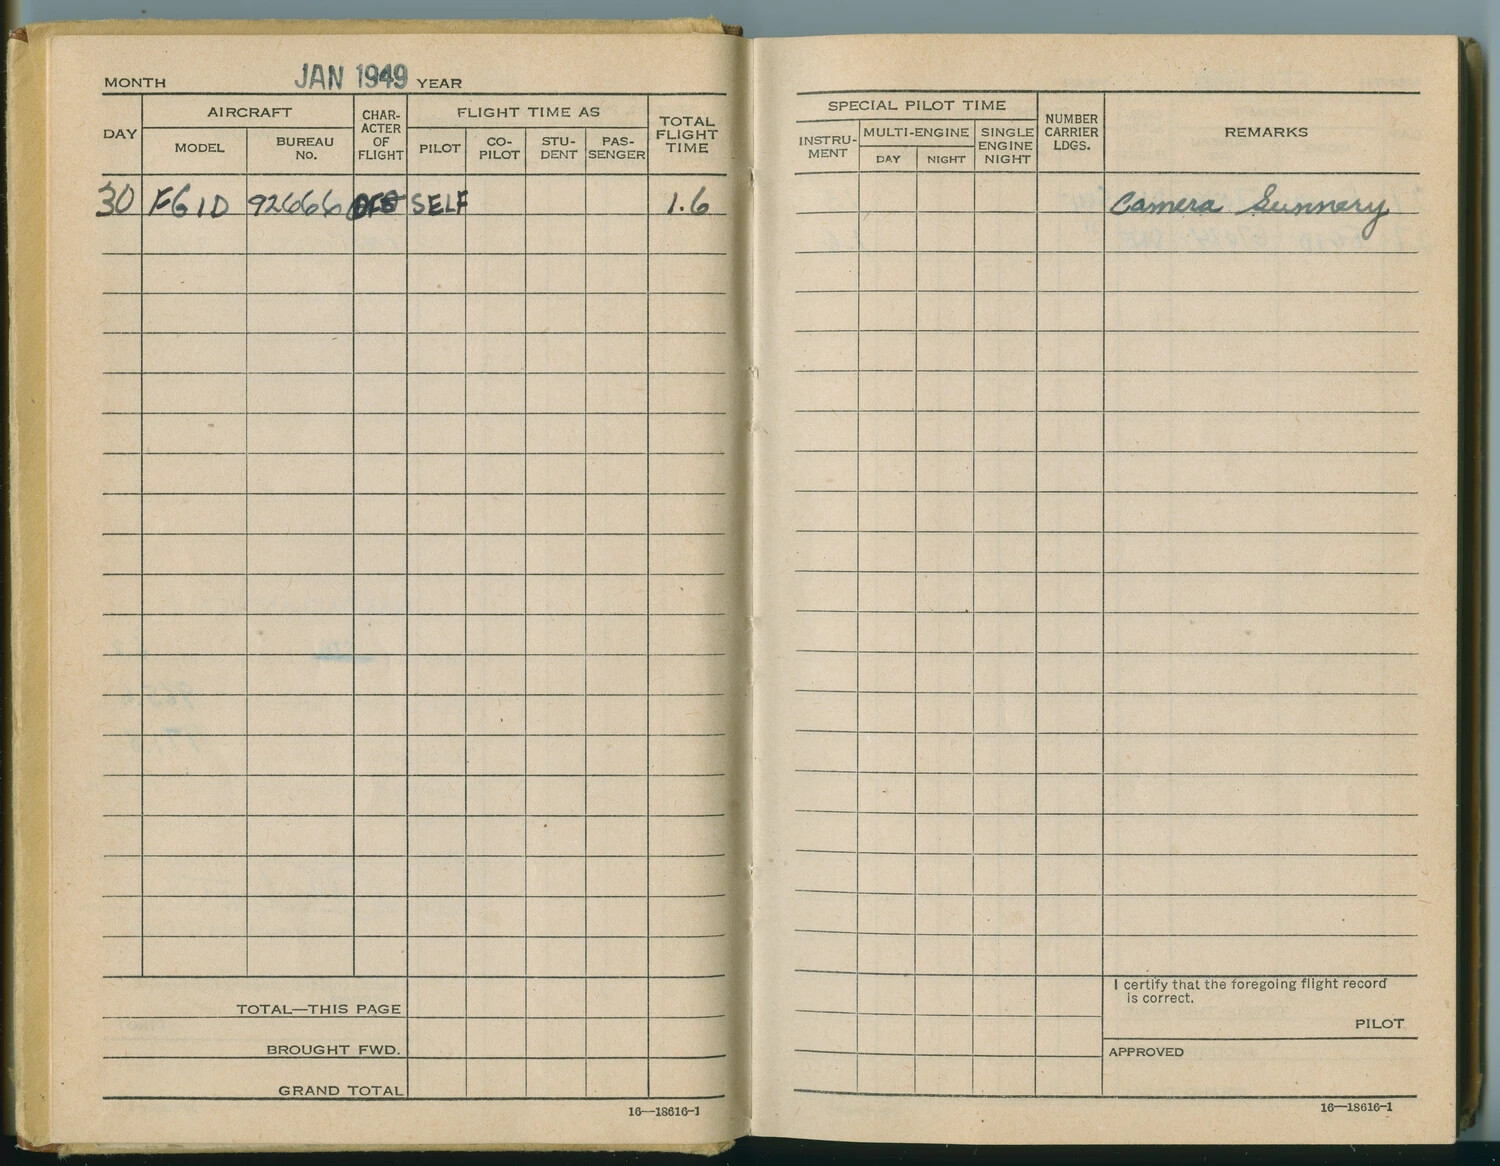 MONTH JAN 1949 YEAR
DAY
AIRCRAFT
MODEL
BUREAU NO.
CHAR-
ACTER
OF
FLIGHT
FLIGHT TIME AS
PILOT
CO-
PILOT
STU-
DENT
PAS-
SENGER
TOTAL
FLIGHT
TIME
30 FG1D 92666 SELF 1.6
TOTAL—THIS PAGE
BROUGHT FWD.
GRAND TOTAL
16—18616-1
SPECIAL PILOT TIME
INSTRU-
MENT
MULTI-ENGINE
DAY
NIGHT
SINGLE
ENGINE
NIGHT
NUMBER
CARRIER
LDGS.
REMARKS
Camera Gunnery
I certify that the foregoing flight record
is correct.
PILOT
APPROVED
16—18616-1